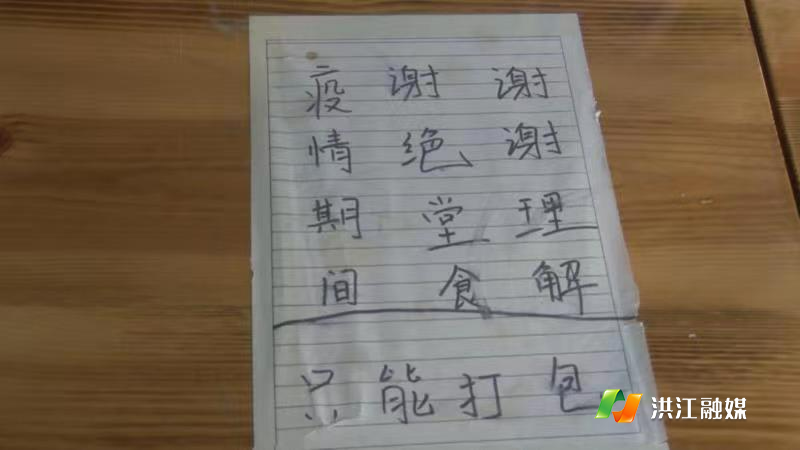 疫情期间
谢绝堂食
谢谢理解
只能打包
洪江融媒